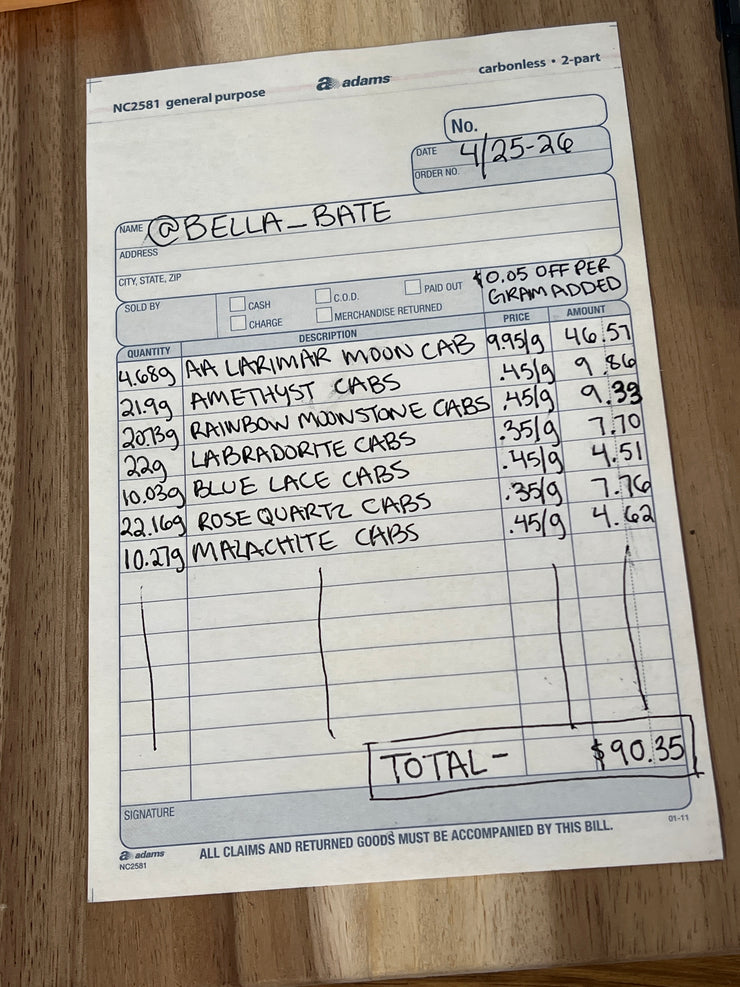 NC2581 general purpose
adams
carbonless • 2-part
No.
DATE 4/25-26
ORDER NO.
NAME @BELLA_BATE
ADDRESS
CITY, STATE, ZIP
SOLD BY
CASH
C.O.D.
PAID OUT
CHARGE
MERCHANDISE RETURNED
$0.05 OFF PER
GRAM ADDED
QUANTITY DESCRIPTION PRICE AMOUNT
4.68g AA LARIMAR MOON CAB 9.95/g 46.57
21.9g AMETHYST CABS .45/g 9.86
20.73g RAINBOW MOONSTONE CABS .45/g 9.33
22g LABRADORITE CABS .35/g 7.70
10.03g BLUE LACE CABS .45/g 4.51
22.16g ROSE QUARTZ CABS .35/g 7.76
10.27g MALACHITE CABS .45/g 4.62
TOTAL- $90.35
SIGNATURE
adams
NC2581
ALL CLAIMS AND RETURNED GOODS MUST BE ACCOMPANIED BY THIS BILL.
01-11